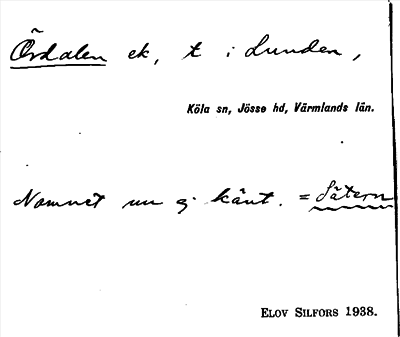 Ördalen ek, t i Lunden,
Köla sn, Jösse hd, Värmlands län.
Namnet nu ej känt. = Sätern
ELOV SILFORS 1938.